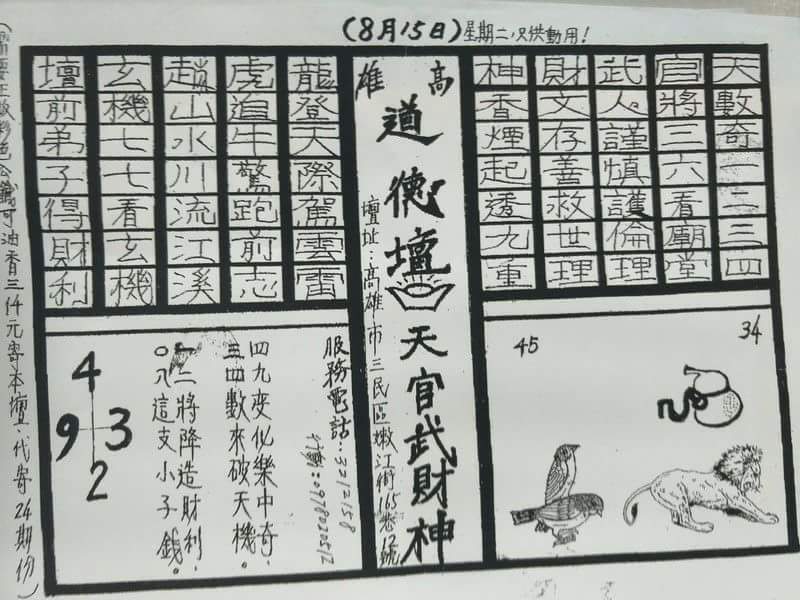 (8月15日)星期二,只供動用!
天數奇一二三四
官將三六看廟堂
武人謹慎護倫理
財文存善救世理
神香煙起透九重
高雄
道德壇
天官武財神
壇址:高雄市三民區嫩江街165巷12號
龍登天際駕雲雷
虎追牛驚跑前志
趙山水川流江溪
玄機七七看玄機
壇前弟子得財利
34
45
服務電話:3212158
四九变化樂中奇,
三四數來破天機。
一二將降造財利,
〇八這支小子錢。
4
9 3
2
油香三仟元寄本壇.代寄24期份)